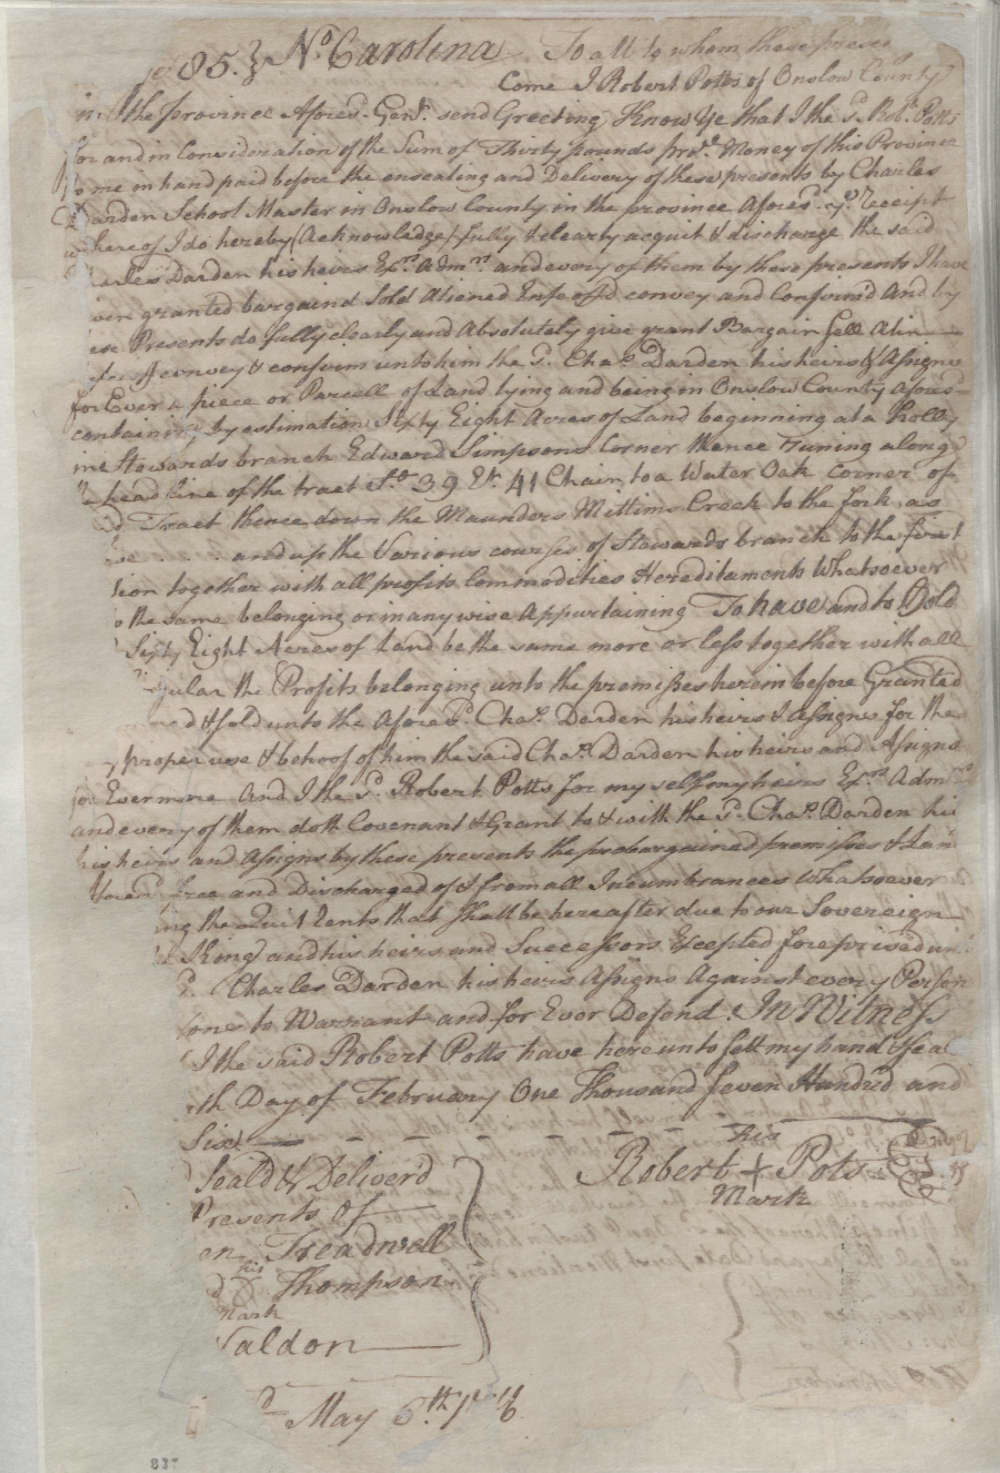 85.} No Carolina To all to whom these presen
Come I Robert Potts of Onslow County
in the province Aforesd. Gent. send Greeting Know Ye that I the Sd. Robt. Potts
for and in Consideration of the Sum of Thirty pounds Money of this Province
to me in hand paid before the ensealing and Delivery of these presents by Charles
Darden School Master in Onslow County in the province Aforesd. ye. receipt
whereof I do hereby (Acknowledge) fully & clearly acquit & discharge the said
arles Darden his heirs Exrs Admrs and every of them by these presents I have
iven granted bargaind Sold Aliened Enfeoffd convey and Confirm'd And by
ese Presents do fully clearly and Absolutely give grant Bargain sell Alin
feoff convey & confirm unto him the Sd. Chas. Darden his heirs & Assigns
for Ever a piece or Parcell of Land lying and being in Onslow County Aforesd
containing by estimation Sixty Eight Acres of Land beginning at a Holley
in Stewards branch Edward Simpsons Corner thence runing along
e head line of the tract So. 39 Et. 41 Chain to a Water Oak corner of
d Tract thence down the Maunders Mittims Creek to the fork as
and up the Various courses of Stowards branch to the first
tion together with all profits Commodities Hereditaments Whatsoever
o the same belonging or in any wise Appurtaining To have and to Hold
Sixty Eight Acres of Land be the same more or less together with all
gular the Profits belonging unto the premisses herein before Granted
ned & sold unto the Afore Sd. Chas. Darden his heirs & Assigns for the
y proper use & behoof of him the said Chas. Darden his heirs and Assigns
for Evermore And I the Sd. Robert Potts for my self my heirs Exrs Admrs
and every of them doth Covenant & Grant to & with the Sd. Chas. Darden his
his heirs and Assigns by these presents the prebargained premises & Lan
free and Discharged of & from all Incumbrances Whatsoever
ing the Quit Rents that shall be hereafter due to our Sovereign
King and his heirs and Successors Excepted foreprised un
Sd. Charles Darden his heirs Assigns Against every Person
sons to Warrant and for Ever Defend. In Witness
I the said Robert Potts have hereunto sett my hand & sea
th Day of February One Thousand Seven Hundrid and
Six
his
Robert + Pots
Mark
Seald & Deliverd
Presents Of
en Treadwell
his
d Thompson
Mark
Valdon
May 6th
837